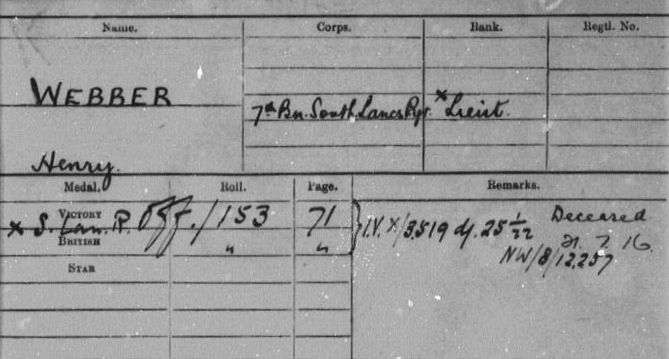 Name. Corps. Rank. Regtl. No.
WEBBER
7th Bn. South Lancs Rgt. × Lieut.
Henry.
Medal. Roll. Page. Remarks.
VICTORY
× S. Lan. R. Off./153 71 I.V.X/3519 df. 25 1/22 Deceased
BRITISH " " 21.7.16.
NW/8/12257
STAR